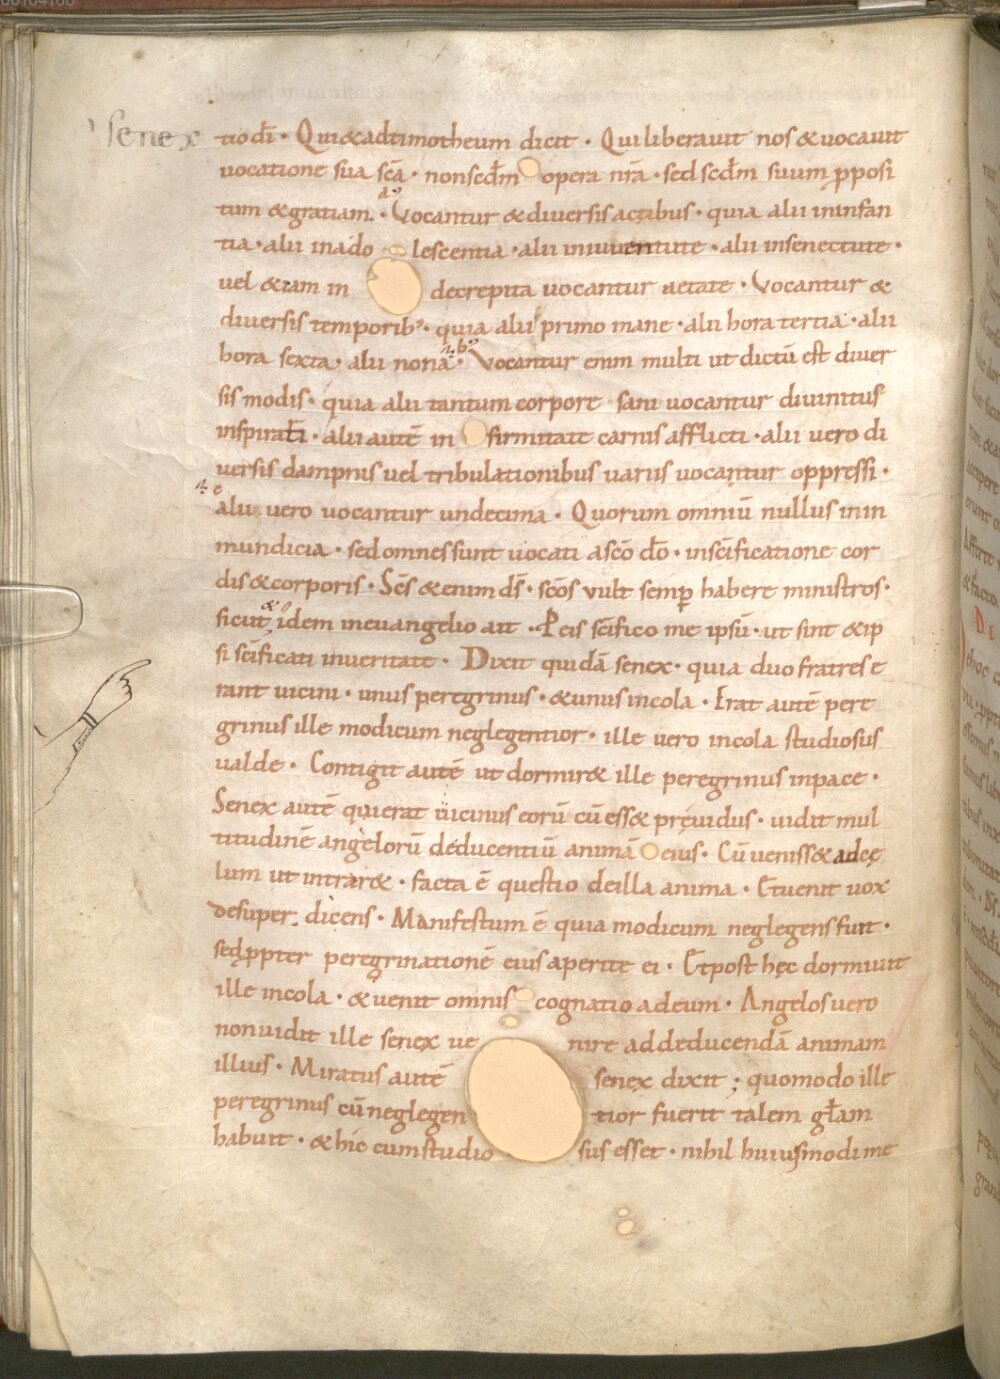 senex
tiodī · Qui & adtimotheum dicit · Qui liberavit nos & vocavit
vocatione sua scā · nonsecdm opera nrā · sed secdm suum pposi
tum & gratiam · Vocantur & diversis actibus · quia alii ininfan
tia · alii inado lescentia · alii iniuventute · alii insenectute ·
vel &iam in decrepita vocantur aetate · Vocantur &
diversis temporib; · quia alii primo mane · alii hora tertia · alii
hora sexta · alii nona · Vocantur enim multi ut dictū est diver
sis modis · quia alii tantum corpore sani vocantur divinitus
inspirati · alii autē in firmitate carnis afflicti · alii vero di
versis dampnis vel tribulationibus variis vocantur oppressi ·
alii vero vocantur undecima · Quorum omniū nullus inin
mundicia · sed omnes sunt vocati ascō dō · inscificatione cor
dis & corporis · Scs & enim ds · scos vult semp habere ministros ·
sicut idem inevangelio ait · Peis scifico me ipsū · ut sint & ip
si scificati inveritate · Dixit quidā senex · quia duo fratres e
rant vicini · unus peregrinus · & unus incola · Erat autē pere
grinus ille modicum neglegentior · ille vero incola studiosus
valde · Contigit autē ut dormir& ille peregrinus inpace ·
Senex autē qui erat vicinus eorū cū ess& previdus · vidit mul
titudinē angelorū deducentiū animā eius · Cū veniss& adcę
lum ut intrar& · facta ē questio deilla anima · Et venit vox
desuper dicens · Manifestum ē quia modicum neglegens fuit ·
sed ppter peregrinationē eius aperite ei · Et post hęc dormivit
ille incola · & venit omnis cognatio adeum · Angelos vero
non vidit ille senex ve nire ad deducendā animam
illius · Miratus autē senex dixit ; quomodo ille
peregrinus cū neglegen tior fuerit talem głam
habuit · & hic cum studio sus esset · nihil huiusmodi me